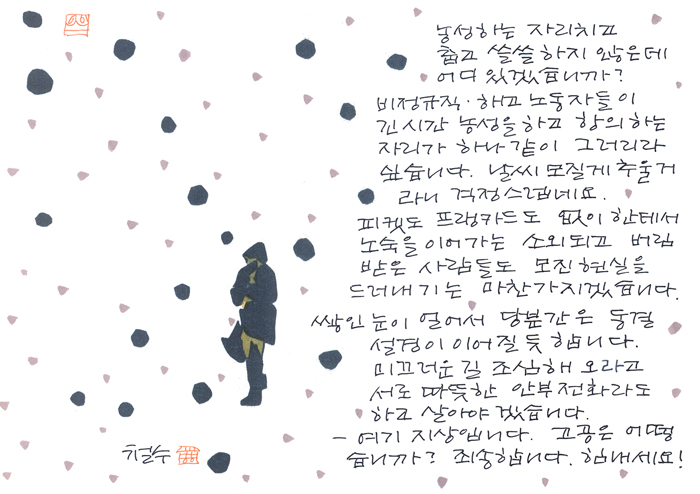 농성하는 자리치고
춥고 쓸쓸하지 않은데
어디 있겠습니까?
비정규직·해고 노동자들이
긴 시간 농성을 하고 항의하는
자리가 하나같이 그러리라
싶습니다. 날씨 모질게 추울거
라니 걱정스럽네요.
피켓도 프랭카드도 없이 한데서
노숙을 이어가는 소외되고 버림
받은 사람들도 모진 현실을
드러내기는 마찬가지겠습니다.
쌓인 눈이 얼어서 당분간은 동결
설경이 이어질 듯 합니다.
미끄러운 길 조심해 오라고
서로 따뜻한 안부전화라도
하고 살아야 겠습니다.
- 여기 지상입니다. 고공은 어떻
습니까? 죄송합니다. 힘내세요!
철수